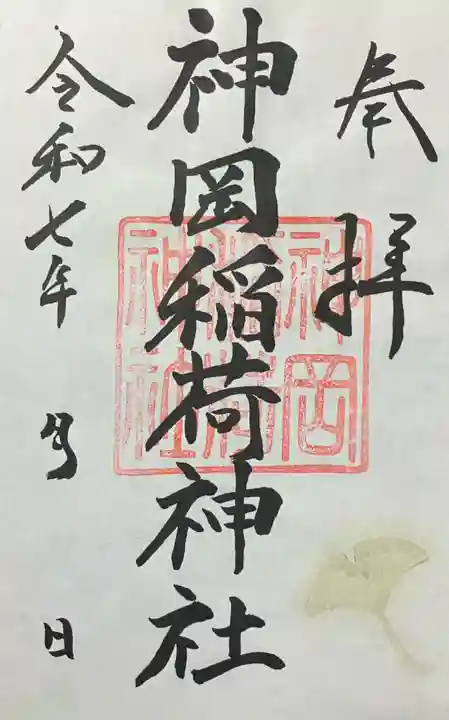 奉拝
神岡稲荷神社
神岡
稲荷
神社
令和七年 月 日